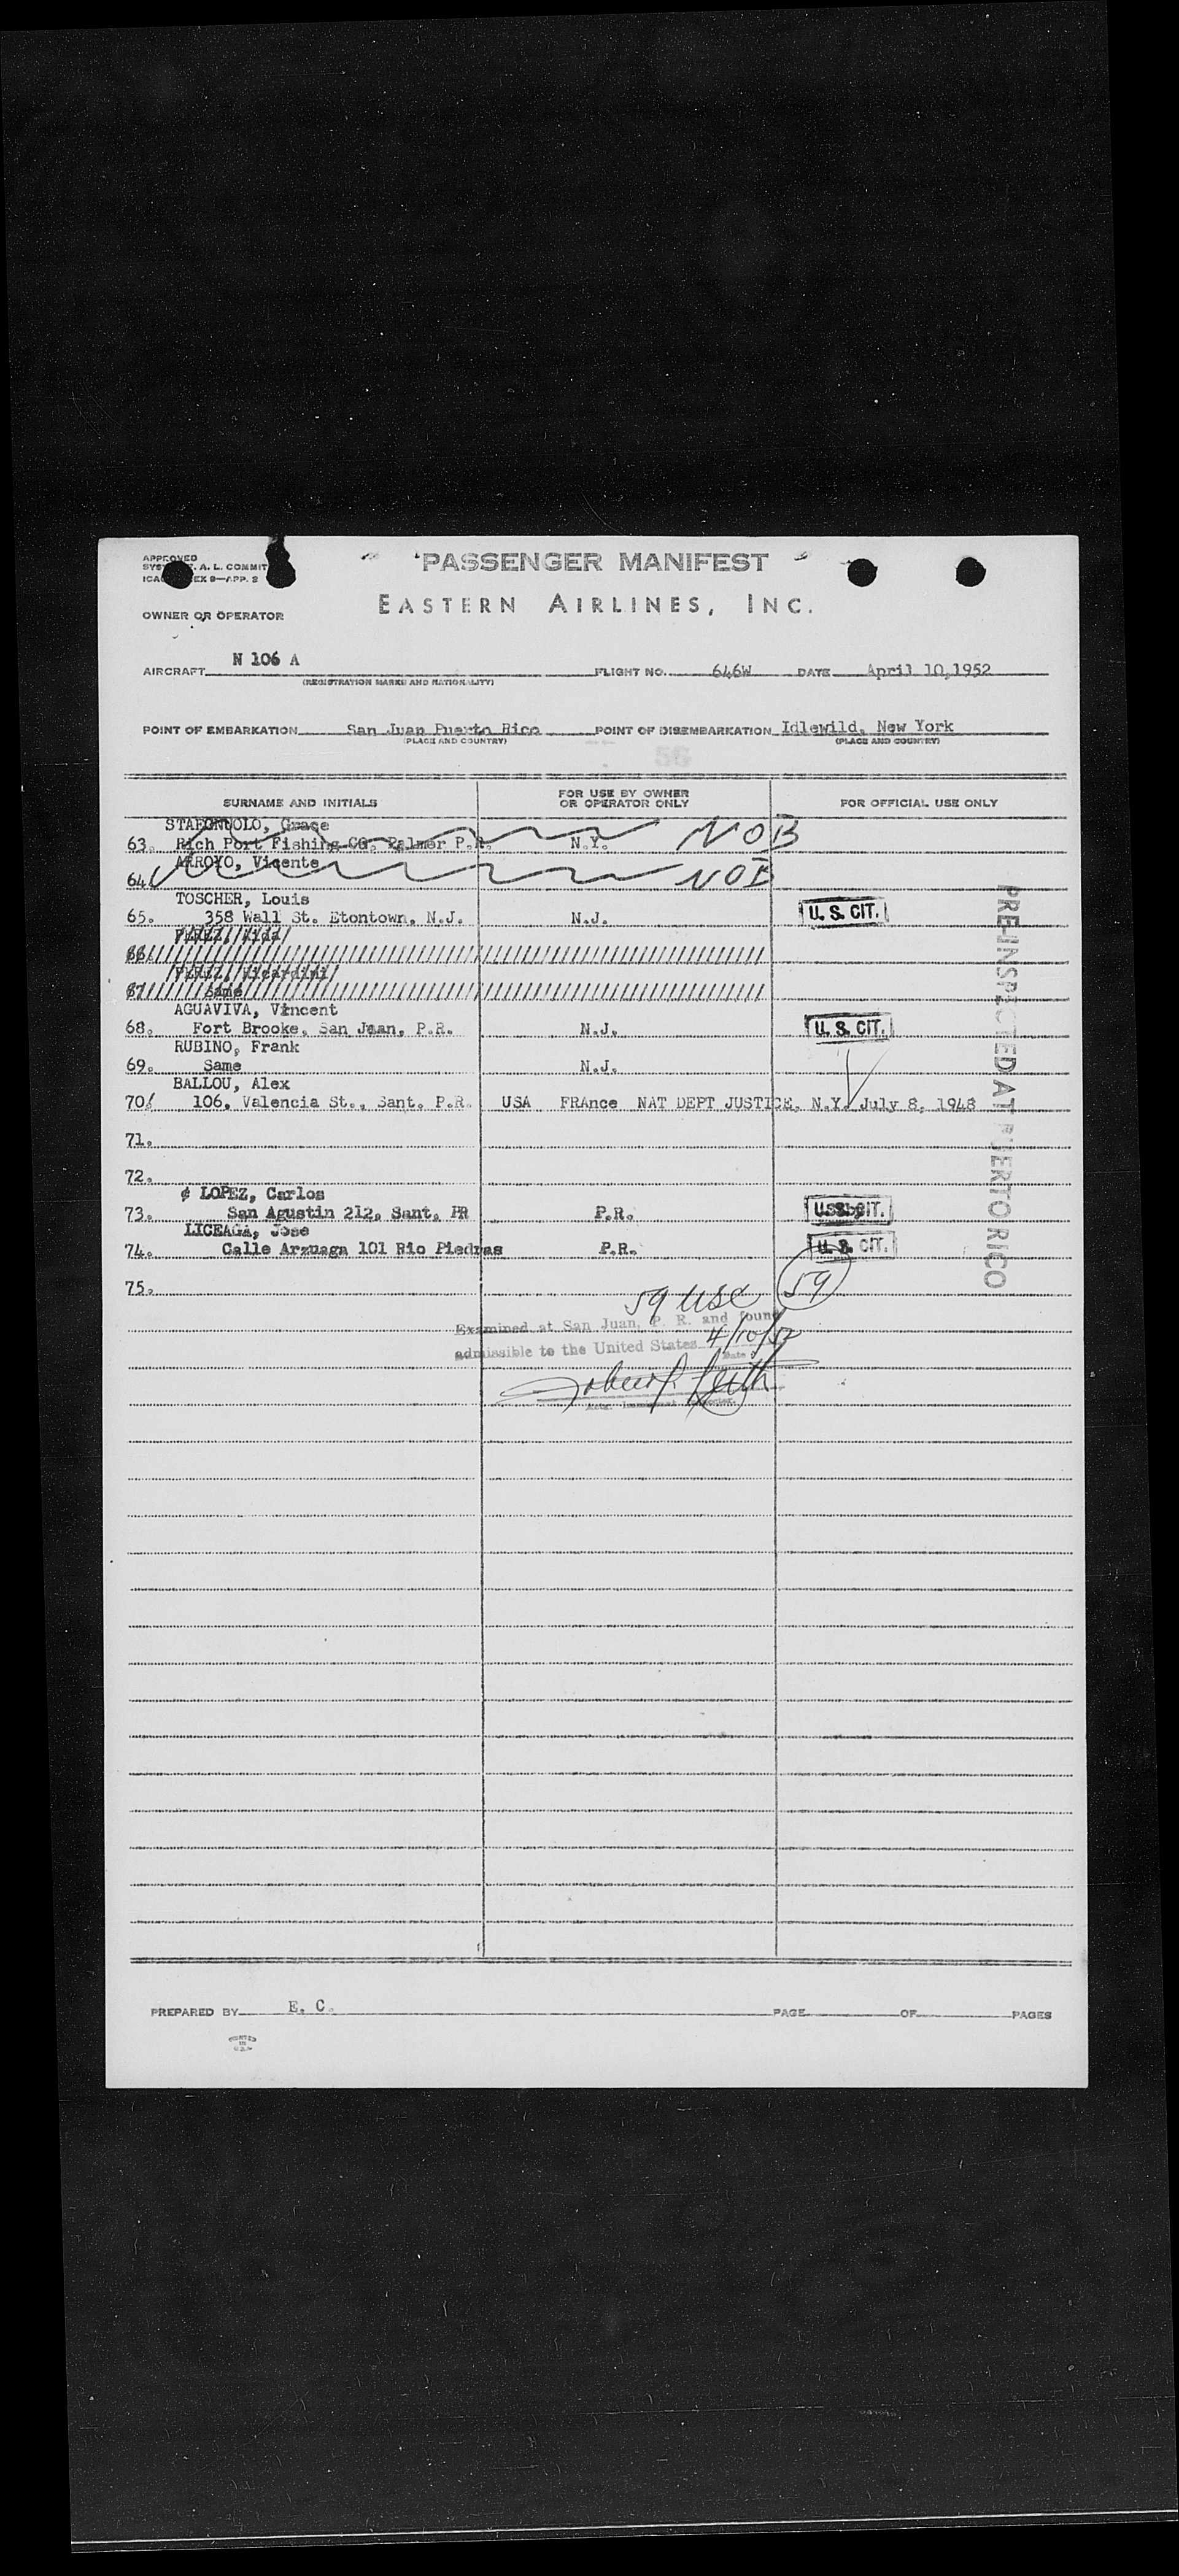 APPROVED
A. L. COMMIT
EX 9—APP. 2
PASSENGER MANIFEST
EASTERN AIRLINES, INC.
OWNER OR OPERATOR
AIRCRAFT N 106 A FLIGHT NO. 646W DATE April 10,1952
(REGISTRATION MARKS AND NATIONALITY)
POINT OF EMBARKATION San Juan Puerto Rico POINT OF DISEMBARKATION Idlewild, New York
(PLACE AND COUNTRY) (PLACE AND COUNTRY)
56
SURNAME AND INITIALS FOR USE BY OWNER OR OPERATOR ONLY FOR OFFICIAL USE ONLY
Grace
63. Rich Port Fishing CO. Palmer P.R. N.Y. NOB
ARROYO, Vicente
64. NOB
TOSCHER, Louis
65. 358 Wall St. Etontown, N.J. N.J. U. S. CIT.
PEREZ, Aida
66.
PEREZ,
67. Same
AGUAVIVA, Vincent
68. Fort Brooke, San Juan, P.R. N.J. U. S. CIT.
RUBINO, Frank
69. Same N.J.
BALLOU, Alex
70. 106, Valencia St., Sant. P.R. USA FRAnce NAT DEPT JUSTICE, N.Y. July 8, 1948
71.
72.
LOPEZ, Carlos
73. San Agustin 212, Sant. PR P.R. U. S. CIT.
LICEAGA, Jose
74. Calle Arzuaga 101 Rio Piedras P.R. U. S. CIT.
75.
59 USC 59
Examined at San Juan, P. R. and found
admissible to the United States 4/10/52
Date
PRE-INSPECTED AT PUERTO RICO
PREPARED BY E. C. PAGE OF PAGES
PRINTED
IN
U.S.A.